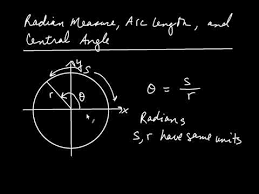 Radian Measure, Arc Length, and
Central Angle
y
s
r
θ
x
θ = s/r
Radians
s, r have same units